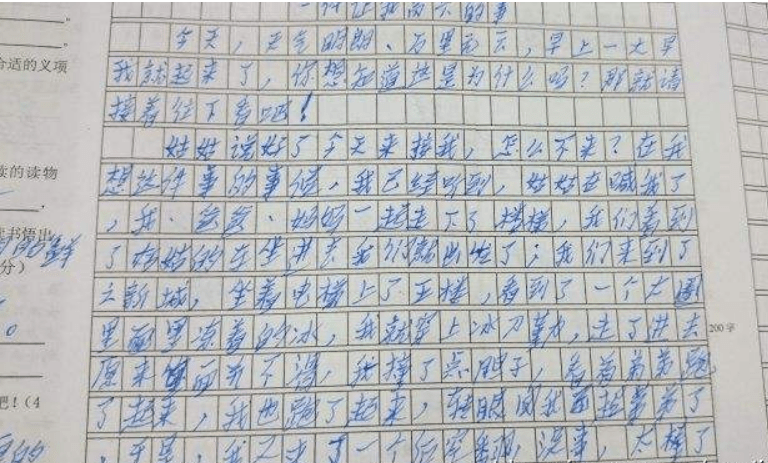 一件让我
今天，天气晴朗、万里无云，早上一大早
合适的义项
我就起来了，你想知道这是为什么吗？那就请
接着往下看吧！
姑姑说好了今天来接我，怎么不来？在我
读的读物
想这件事的事候，我已经听到，姑姑在喊我了
，我、爸爸、妈妈一起走下了楼梯，我们看到
读书悟出
了姑姑的车坐进去我们就出发了，我们来到了
分）
新城，坐着电梯上了五楼，看到了一个大圈
里面里冻着的冰，我就穿上冰刀，走了进去
200字
原来，我撑了点胆子，看着弟弟跑
了起来，我也跑了起来，转眼间我追弟弟了
吧！（4
，于是，我又来了一个，没事，太棒了